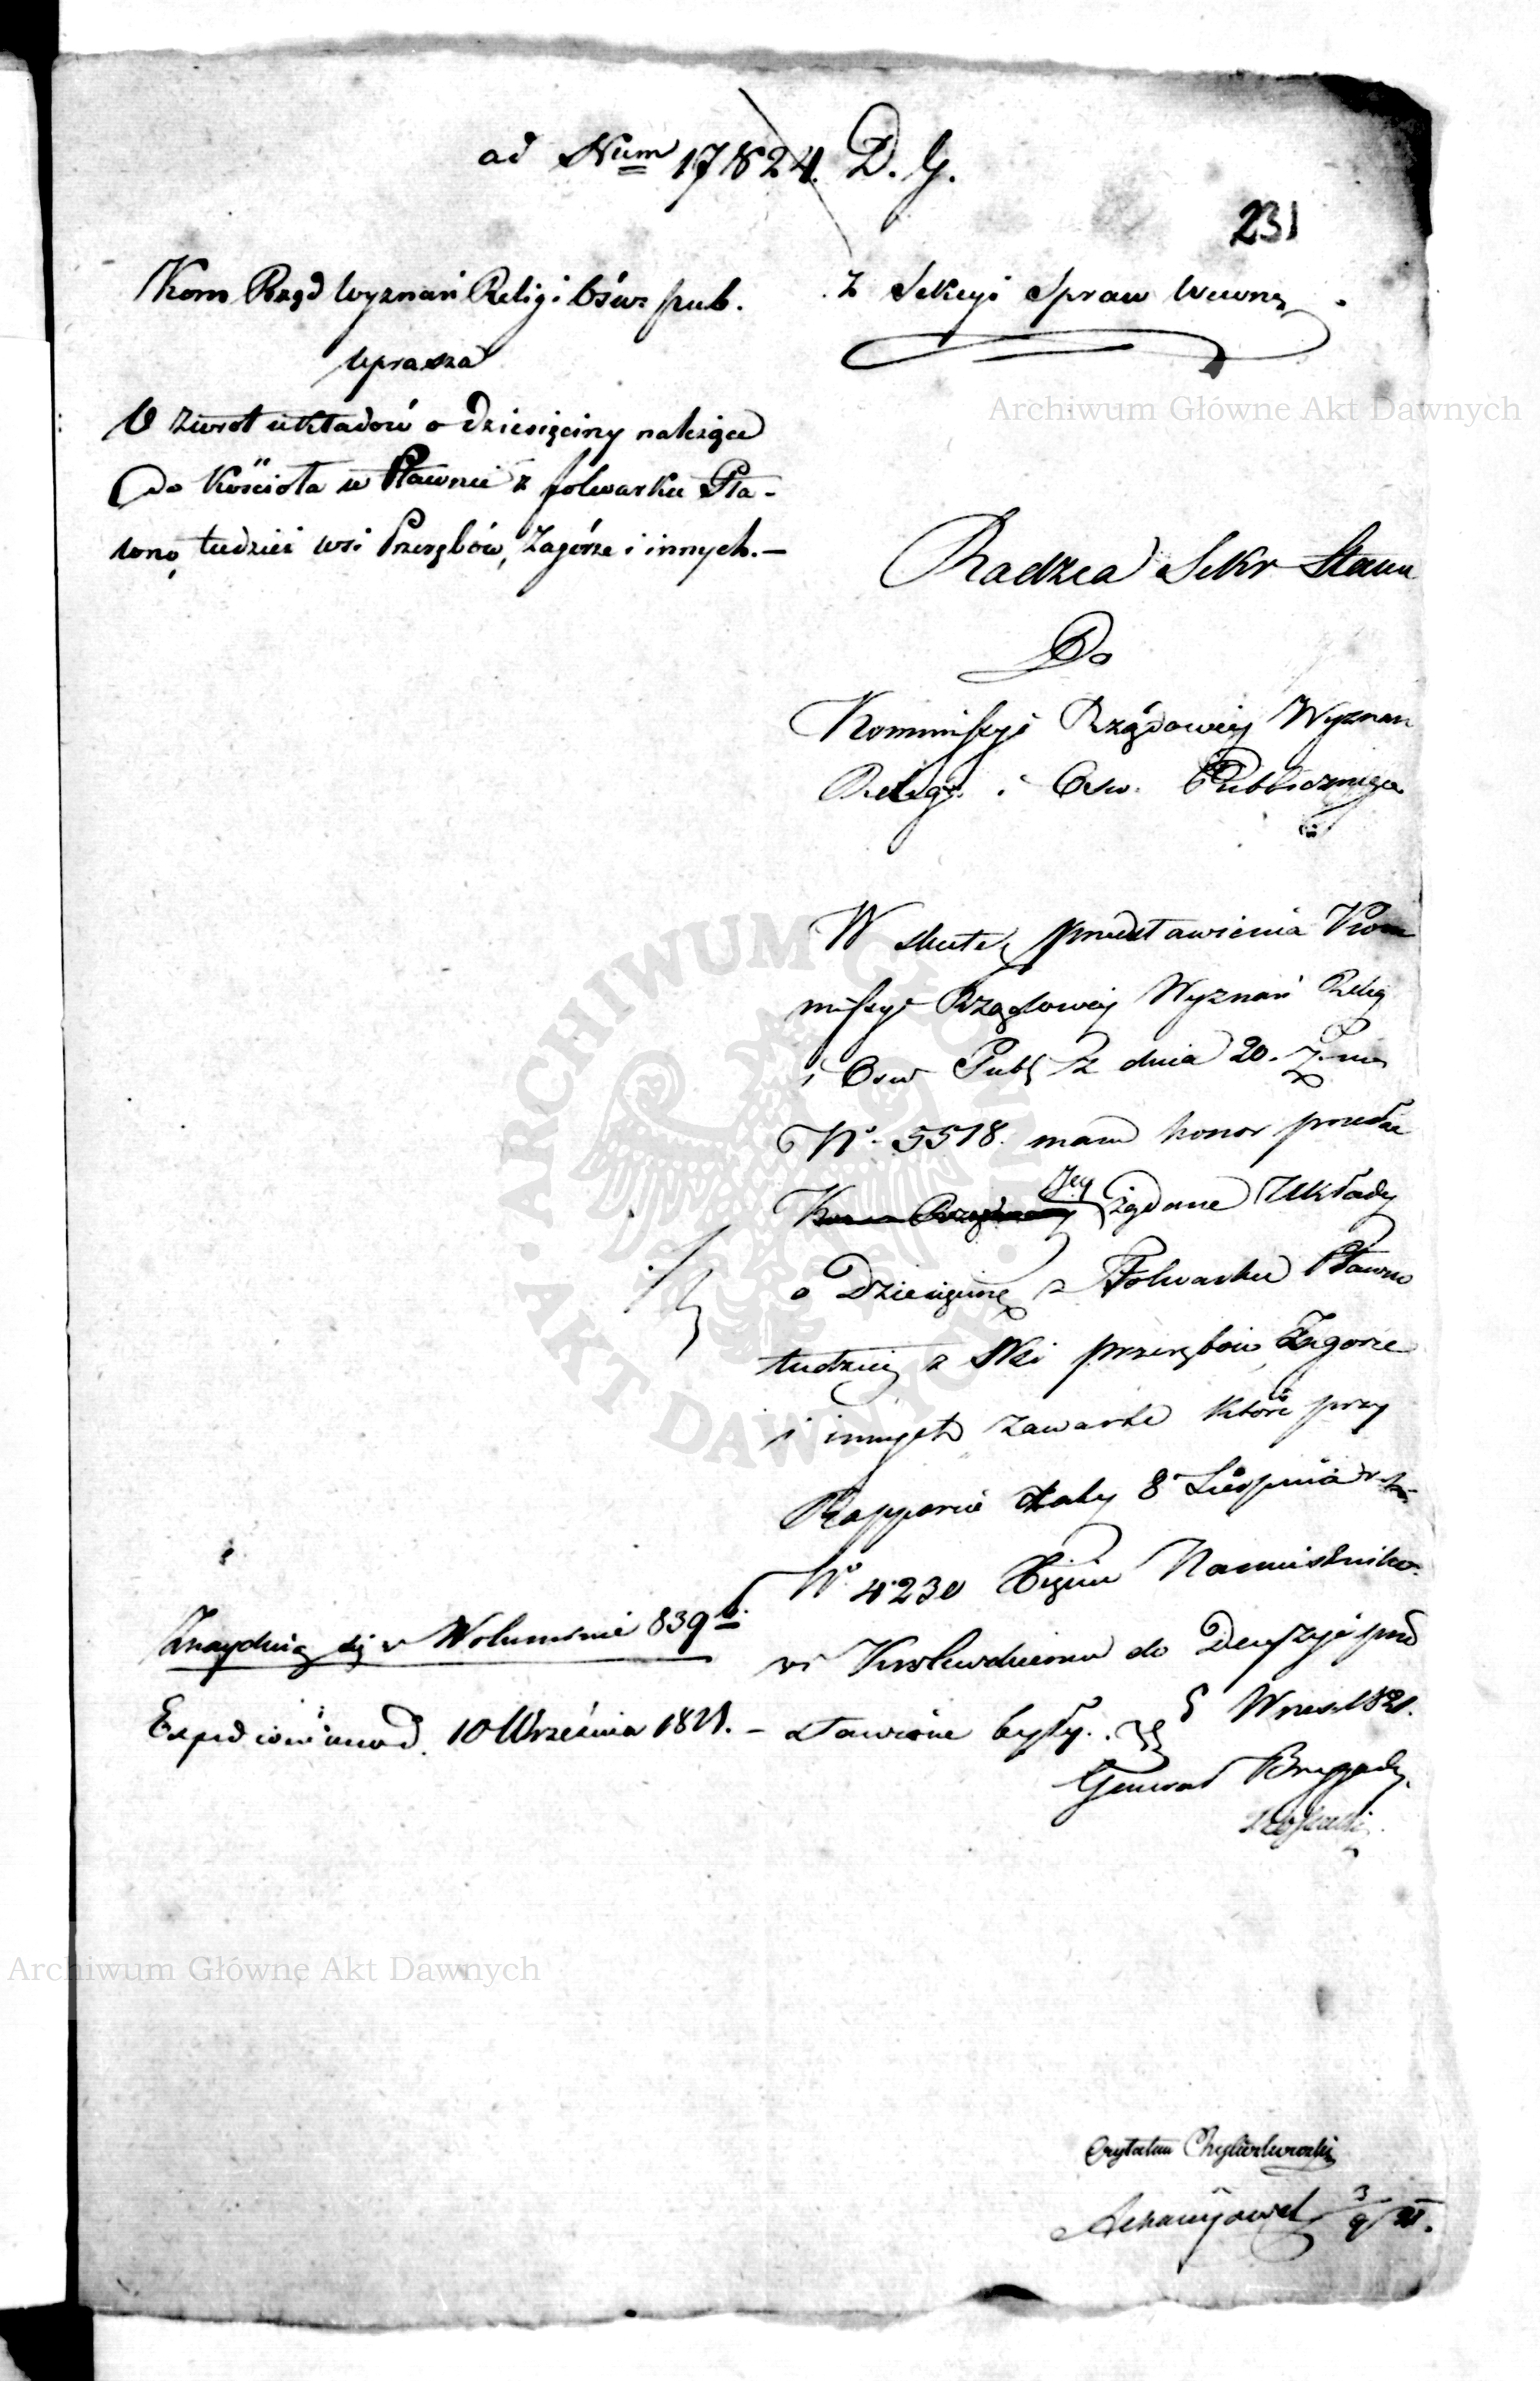 ad Num 17824. D. G.
231
Kom Rząd Wyznań Religi Ośw. pub.
uprasza
O zwrot układów o dziesięciny należące
do Kościoła w Pławnie z folwarku Pła-
wno, tudzież wsi Przerębów, Zagórze i innych.—
Z Sekcyi Spraw Wewnę
Archiwum Główne Akt Dawnych
Radzca Sekr Stanu
Do
Kommissyi Rządowey Wyznań
Relig. i Ośw. Publicznego
W skutek przedstawienia Kom
missyi Rządowey Wyznań Relig
i Osw Publ z dnia 20.
No. 5518. mam honor przesłać
Jey żądane Układy
o Dziesięcinę z Folwarku Pławno
tudzież z Wsi Przerębów, Zagorze
i innych zawarte które przy
Rapporcie daty 8 Sierpnia
No 4230 Xięciu Namiestniko
wi Krolewskiemu do Decyzyi przed
stawione były. Wrześ. 1821.
Generał Brygady
Znayduią się w Woluminie 839
Expediowano d. 10 Września 1821.—
ARCHIWUM GŁÓWNE AKT DAWNYCH
Archiwum Główne Akt Dawnych
Czytałem
3/9 21.